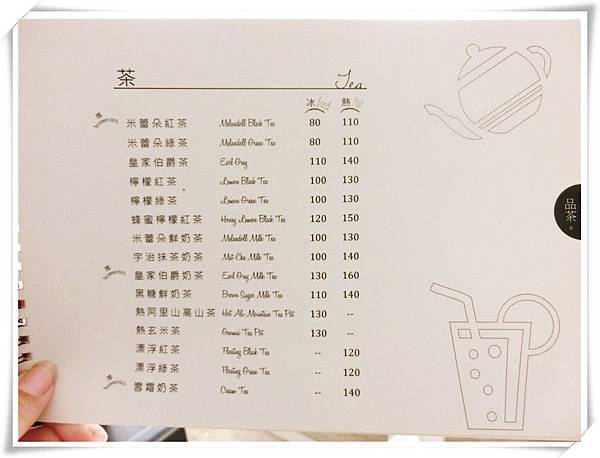 茶 Tea
冰 Iced 熱 Hot
推 米蕾朵紅茶 Melandoll Black Tea 80 110
米蕾朵綠茶 Melandoll Green Tea 80 110
皇家伯爵茶 Earl Grey 110 140
檸檬紅茶 Lemon Black Tea 100 130
檸檬綠茶 Lemon Green Tea 100 130
蜂蜜檸檬紅茶 Honey Lemon Black Tea 120 150
米蕾朵鮮奶茶 Melandoll Milk Tea 100 130
宇治抹茶奶茶 Mat-Cha Milk Tea 100 140
推 皇家伯爵奶茶 Earl Grey Milk Tea 130 160
黑糖鮮奶茶 Brown Sugar Milk Tea 110 140
熱阿里山高山茶 Hot Ali-Mountain Tea Pot 130 --
熱玄米茶 Genmai Tea Pot 130 --
漂浮紅茶 Floating Black Tea -- 120
漂浮綠茶 Floating Green Tea -- 120
推 雪霜奶茶 Cream Tea -- 140
品茶。